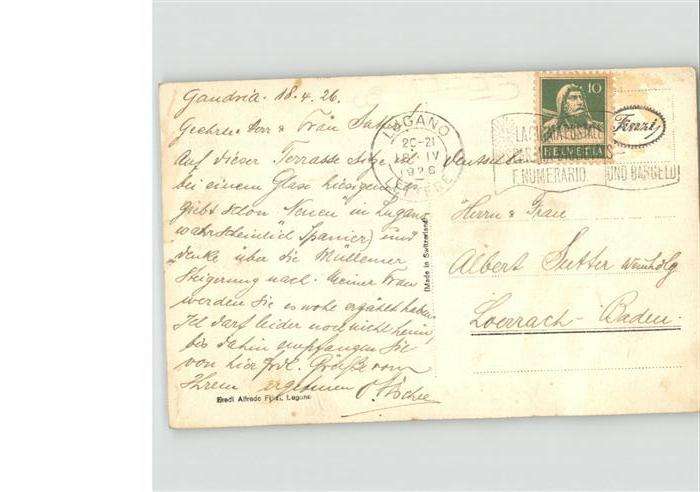 Gandria. 18.4.26.
Geehrter Herr & Frau Sutter
Auf dieser Terrasse sitze ich
bei einem Glase hiesigem, es
giebt schon Neuen in Lugano
(wahrscheinlich Spanier) und
denke über die Müllemer
Steigerung nach. Meiner Frau
werden Sie es wohl erzählt haben.
Ich darf leider noch nicht heim,
bis dahin empfangen Sie
von hier frdl. Grüße vom
Ihrem ergebenen
Eredi Alfredo Finzi, Lugano
(Made in Switzerland)
LUGANO
20-21
18·IV
1926
LETTERE
10
HELVETIA
Finzi
F NUMERARIO
UND BARGELD
Deutschland
Herrn & Frau
Albert Sutter Weinhdlg
Loerrach - Baden.